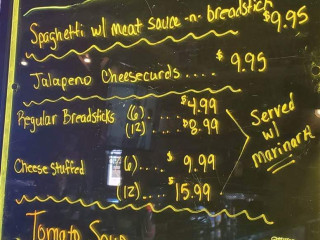 Spaghetti w/ meat sauce -n- breadstick $9.95
Jalapeno Cheesecurds .... $9.95
Regular Breadsticks (6).... $4.99
(12).... $8.99
Served w/ Marinara
Cheese Stuffed (6).... $9.99
(12).... $15.99
Tomato Soup